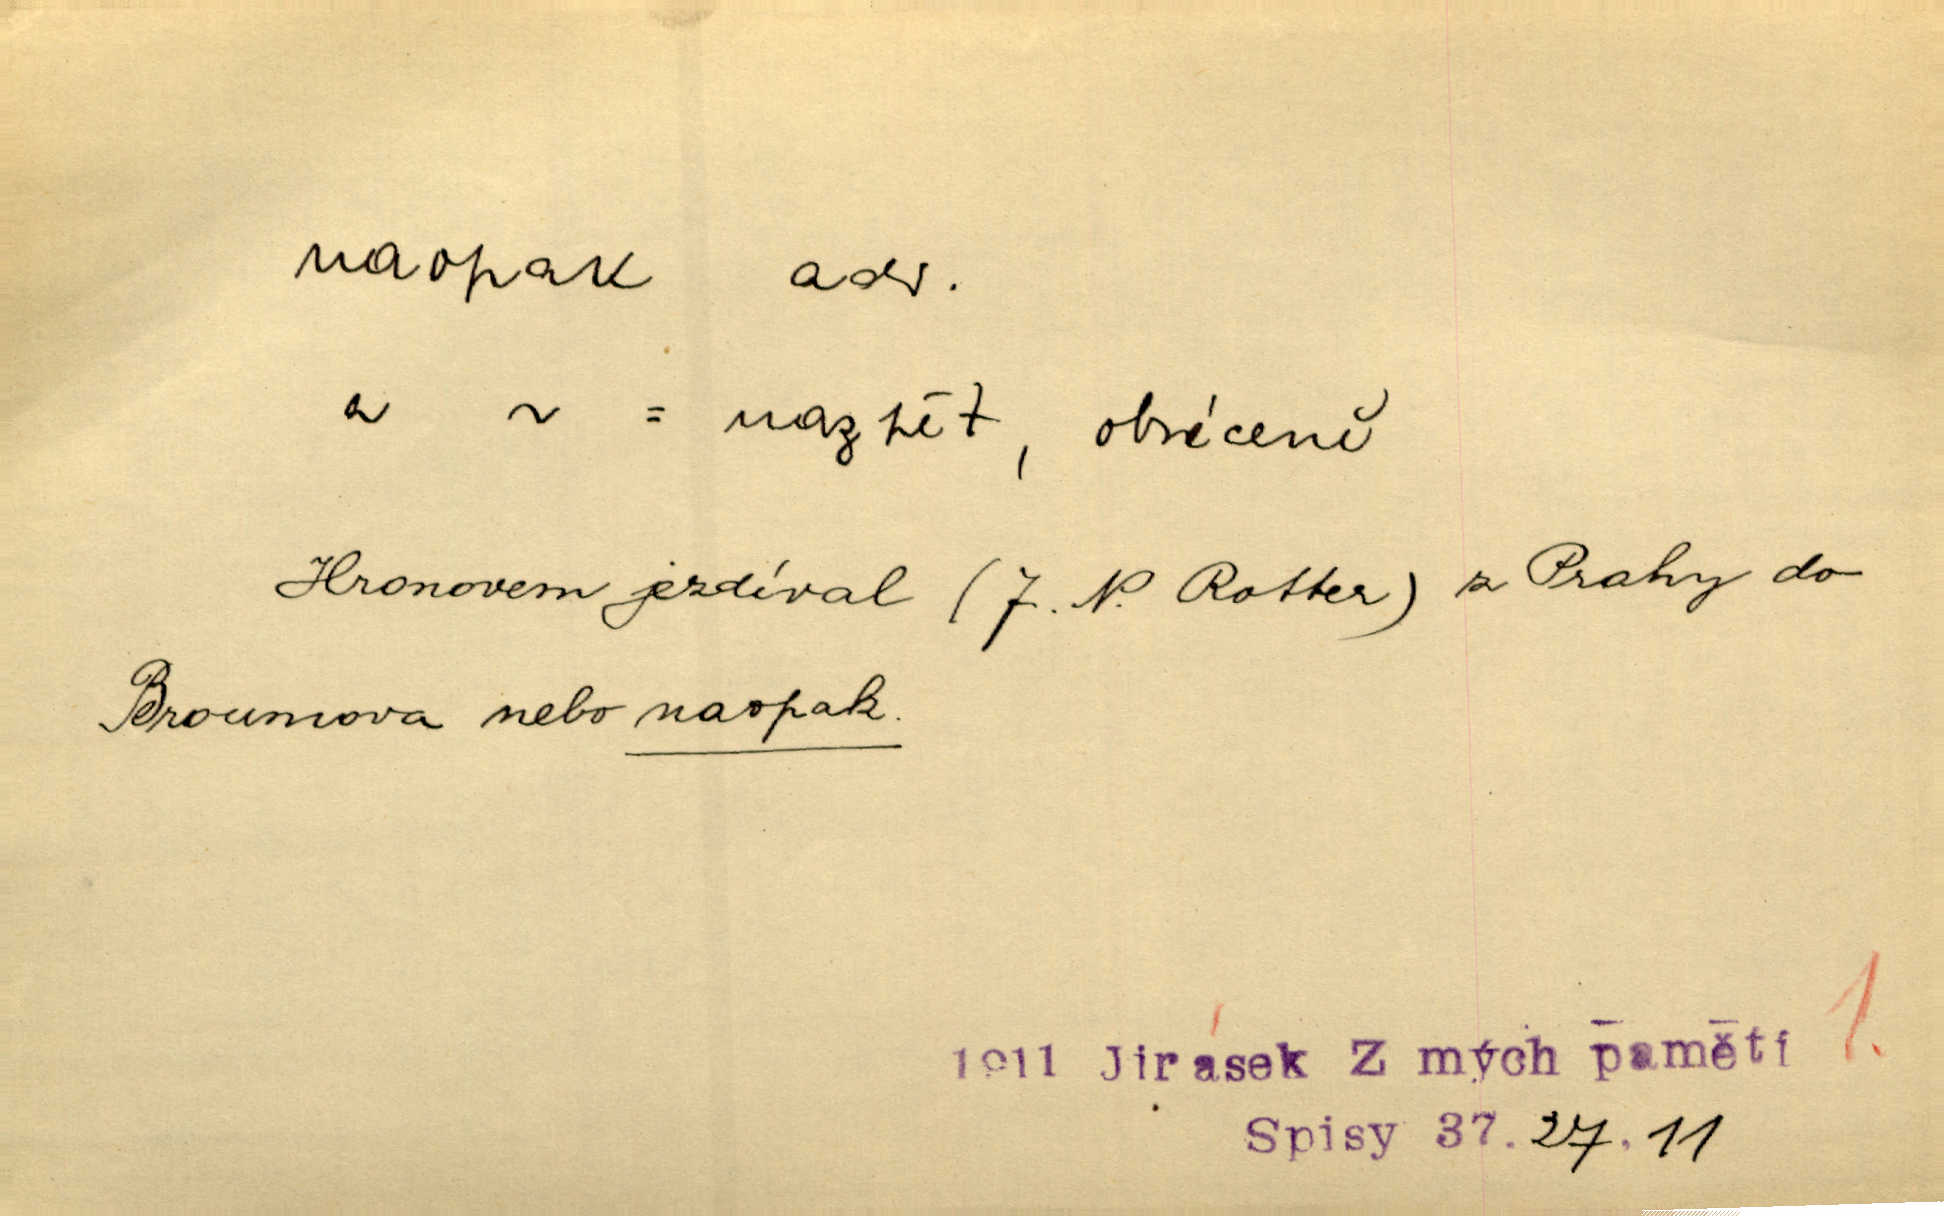 naopak adv.
a ~ = nazpět, obráceně
Hronovem jezdíval (J. N. Rotter) z Prahy do
Broumova nebo naopak.
1.
1911 Jirásek Z mých pamětí
Spisy 37. 27. 11